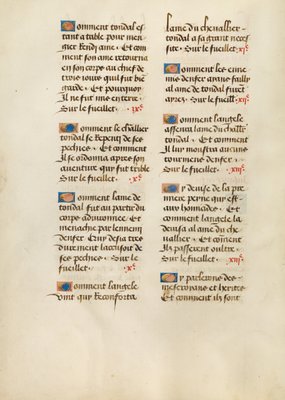 Comment tondal es
tant a table pour men
gier rendj ame. Et com
ment son ame retourna
en son corps au chief de
trois iours qui fut bien
garde. Et pourquoy
Il ne fut mis en terre.
Sur le fueillet .ix.e
Comment le chlller
tondal se repenti de ses
pechies. Et comment
Il se ordonna apres son
auenture qui fut trible
Sur le fueillet. .x.e
Comment lame de
tondal fut au partir du
corps aduironnee. Et
menachie par lennemi
denfer. Cuy desia tres
durement laccusoit de
ses pechies. Sur le
fueillet. .x.e
Comment langele
vint qui Reconforta
lame du chevallier
tondal a sa grant neces
site. Sur le fueillet .xj.e
Comment les enne
mis denfer auant failly
al ame de tondal furent
apres. Sur le fueill. .xij.e
Comment langele
assenea lame du challr
tondal. Et comment
Il luy monstra aucun
tourment denfer.
Sur le fueillet. .xiij.e
Cy deuise de la pre
miere peyne quy est
aux homicides. Et
comment langele la
deuisa al ame du che
uallier. Et coment
ilz passerent oultre.
Sur le fueillet. .xiij.e
Cy parlerons des
mescreans et herites
Et comment ilz sont